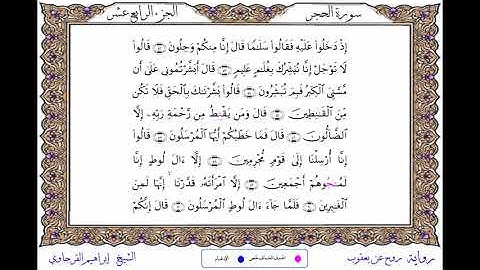 سورة الحجر
الجزء الرابع عشر
إِذْ دَخَلُوا۟ عَلَيْهِ فَقَالُوا۟ سَلَٰمًا قَالَ إِنَّا مِنكُمْ وَجِلُونَ قَالُوا۟
لَا تَوْجَلْ إِنَّا نُبَشِّرُكَ بِغُلَٰمٍ عَلِيمٍ قَالَ أَبَشَّرْتُمُونِى عَلَىٰٓ أَن
مَّسَّنِىَ ٱلْكِبَرُ فَبِمَ تُبَشِّرُونَ قَالُوا۟ بَشَّرْنَٰكَ بِٱلْحَقِّ فَلَا تَكُن
مِّنَ ٱلْقَٰنِطِينَ قَالَ وَمَن يَقْنِطُ مِن رَّحْمَةِ رَبِّهِۦٓ إِلَّا
ٱلضَّآلُّونَ قَالَ فَمَا خَطْبُكُمْ أَيُّهَا ٱلْمُرْسَلُونَ قَالُوٓا۟
إِنَّآ أُرْسِلْنَآ إِلَىٰ قَوْمٍ مُّجْرِمِينَ إِلَّآ ءَالَ لُوطٍ إِنَّا
لَمُنجُوهُمْ أَجْمَعِينَ إِلَّا ٱمْرَأَتَهُۥ قَدَّرْنَآ إِنَّهَا لَمِنَ
ٱلْغَٰبِرِينَ فَلَمَّا جَآءَ ءَالَ لُوطٍ ٱلْمُرْسَلُونَ قَالَ إِنَّكُمْ
رواية روح عن يعقوب
الإدغام
الشيخ إبراهيم الفرجاوي